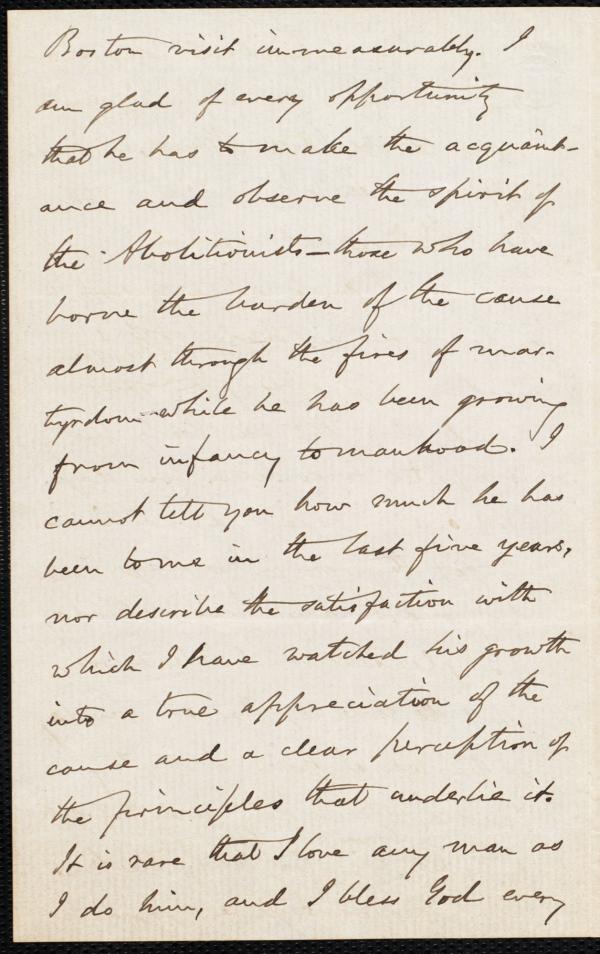 Boston visit immeasurably. I
am glad of every opportunity
that he has to make the acquaint-
ance and observe the spirit of
the Abolitionists—those who have
borne the burden of the cause
almost through the fires of mar-
tyrdom—while he has been growing
from infancy to manhood. I
cannot tell you how much he has
been to me in the last five years,
nor describe the satisfaction with
which I have watched his growth
into a true appreciation of the
cause and a clear perception of
the principles that underlie it.
It is rare that I love any man as
I do him, and I bless God every